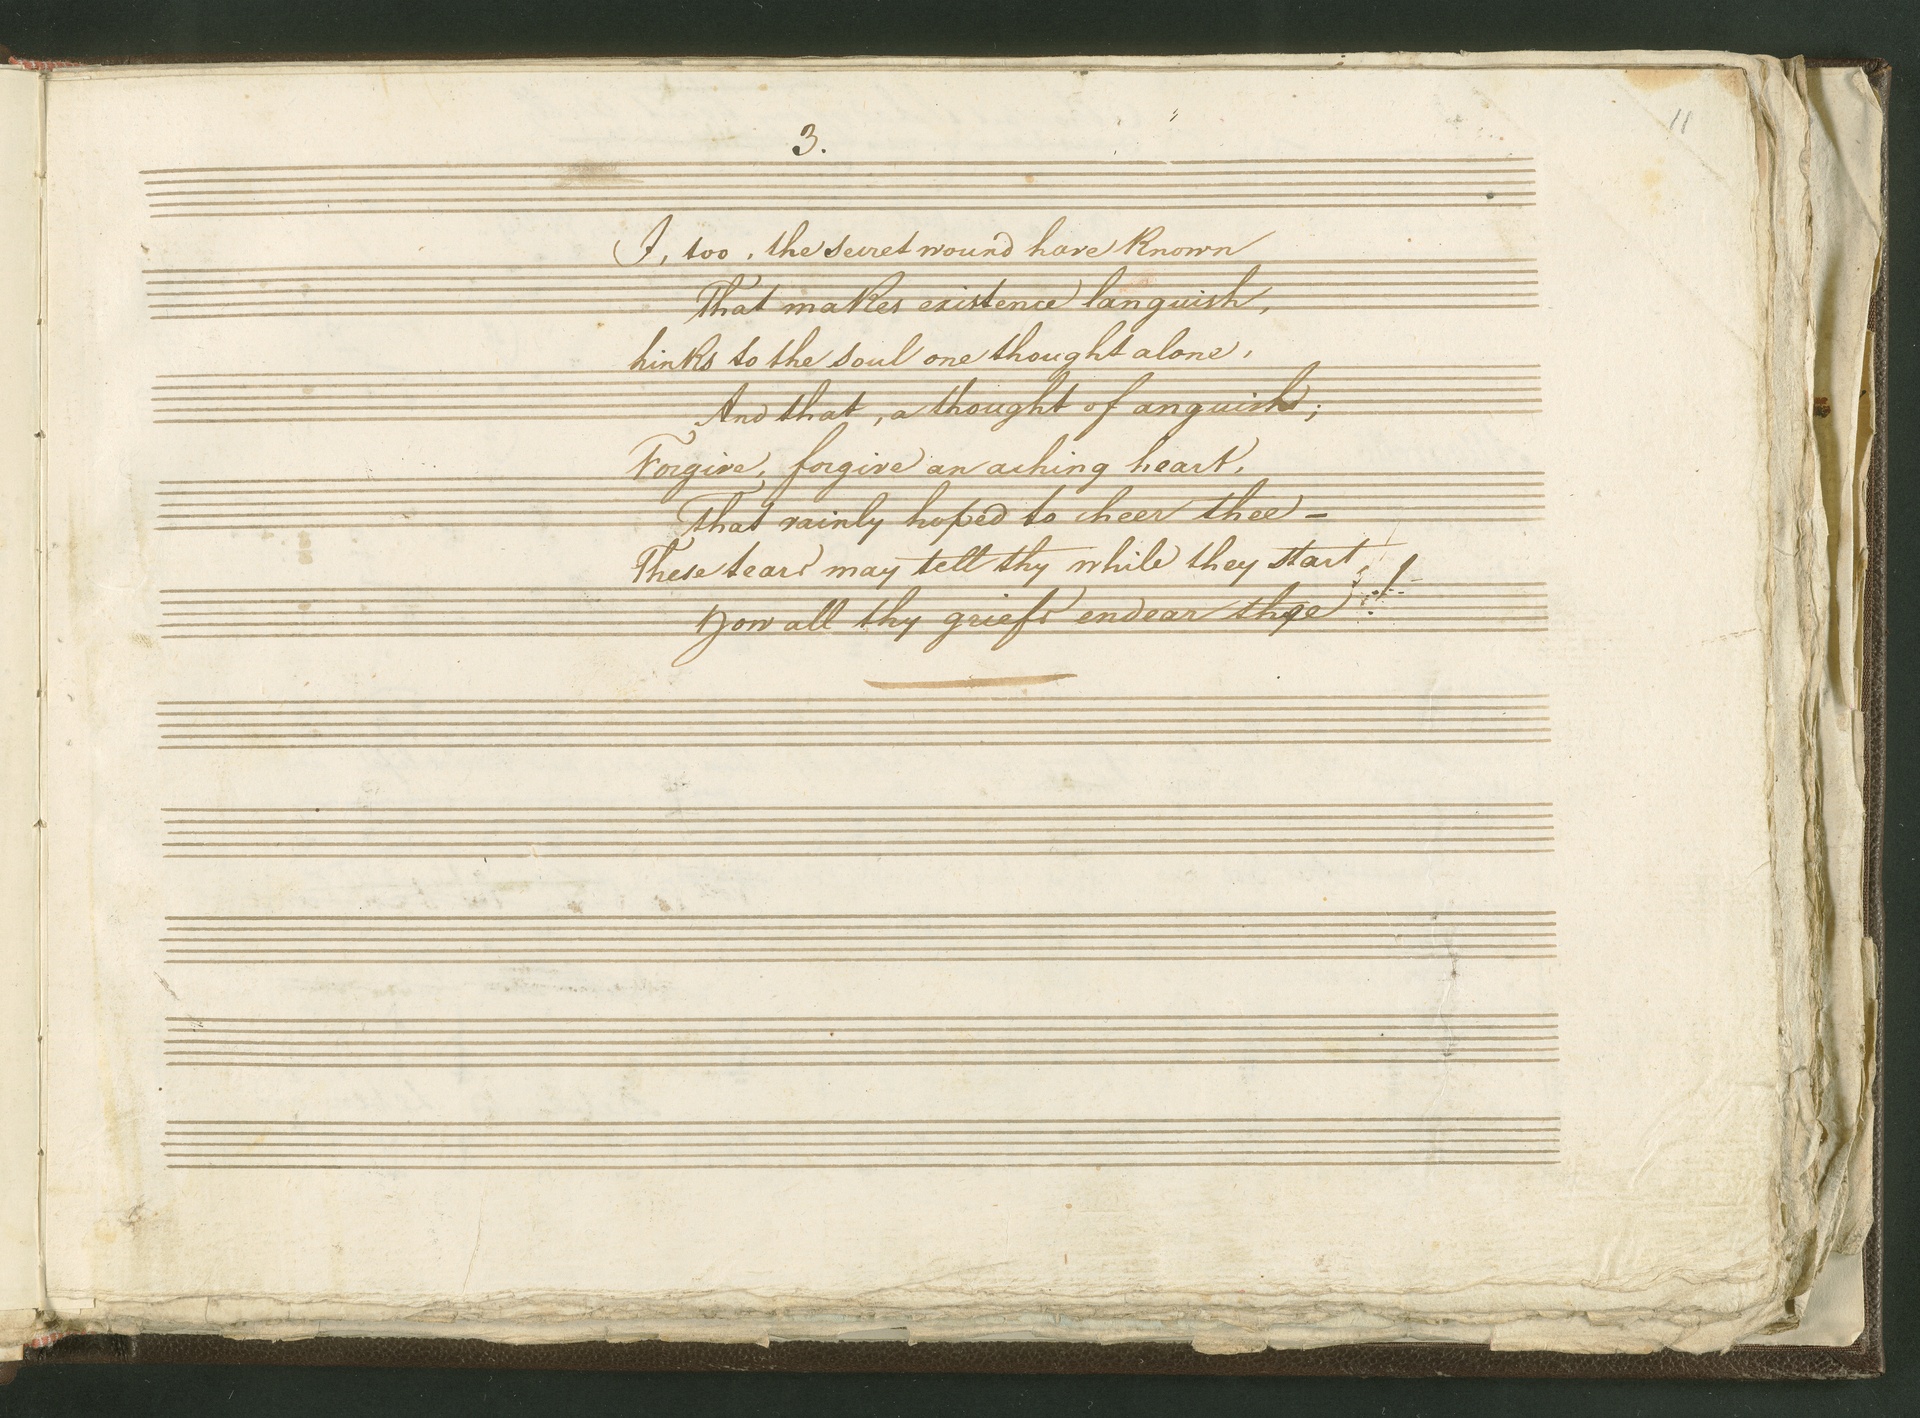 11
3.
I, too, the secret wound have known
That makes existence languish,
Links to the soul one thought alone,
And that, a thought of anguish;
Forgive, forgive an aching heart,
That vainly hoped to cheer thee –
These tears may tell thy while they start,
How all thy griefs endear thee!